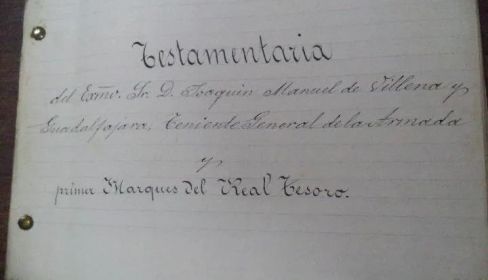 Testamentaria
del Exmo. Sr. D. Joaquin Manuel de Villena y
Guadalfajara, Teniente General de la Armada
y
primer Marques del Real Tesoro.